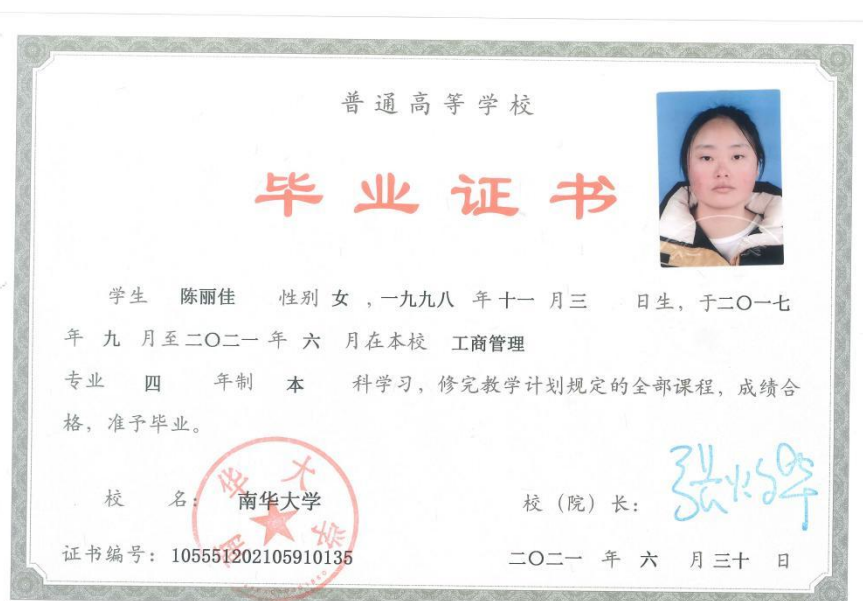 普通高等学校
毕业证书
学生 陈丽佳 性别 女 ,一九九八 年 十一 月 三 日生, 于二〇一七
年 九 月至 二〇二一 年 六 月在本校 工商管理
专业 四 年制 本 科学习, 修完教学计划规定的全部课程, 成绩合
格, 准予毕业。
校 名: 南华大学
校 (院) 长:
证书编号: 105551202105910135
二〇二一 年 六 月 三十 日
南华大学